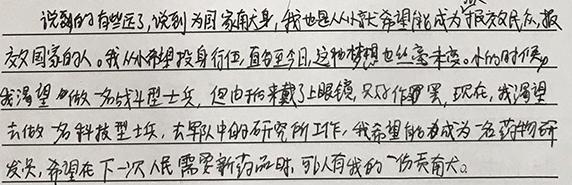 说到的有些远了，说到为国家献身，我也是从小就希望能成为报效民众，报
效国家的人。我从小希望投身行伍，直至今日，这种梦想也丝毫未变。小的时候，
我渴望做一名战斗型士兵，但由于后来戴了上眼镜，只好作罢，现在，我渴望
去做一名科技型士兵，去军队中的研究所工作，我希望能成为一名药物研
发员，希望在下一次人民需要新药品时，可以有我的一份贡献。